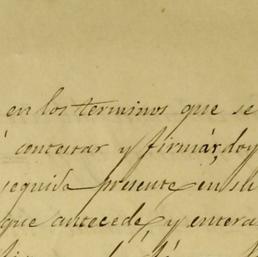 en los terminos que se
contestar y firmár, doy
seguida presente en su
que antecede, y entera